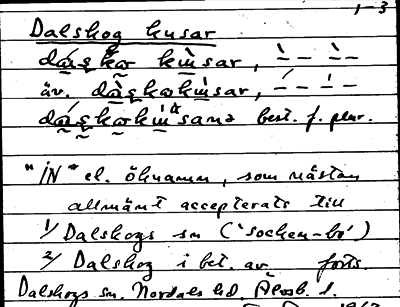 1-3
Dalskog kusar
dàskor kùsar, – – – –
äv. dàskorkùsar, – – – –
dàskorkùsanɜ best. f. plur.
"IN" el. öknamn, som nästan
allmänt accepterats till
1/ Dalskogs sn ('socken-bo')
2/ Dalskog i bet. av forts.
Dalskogs sn. Nordals hd. Älvsb. l.